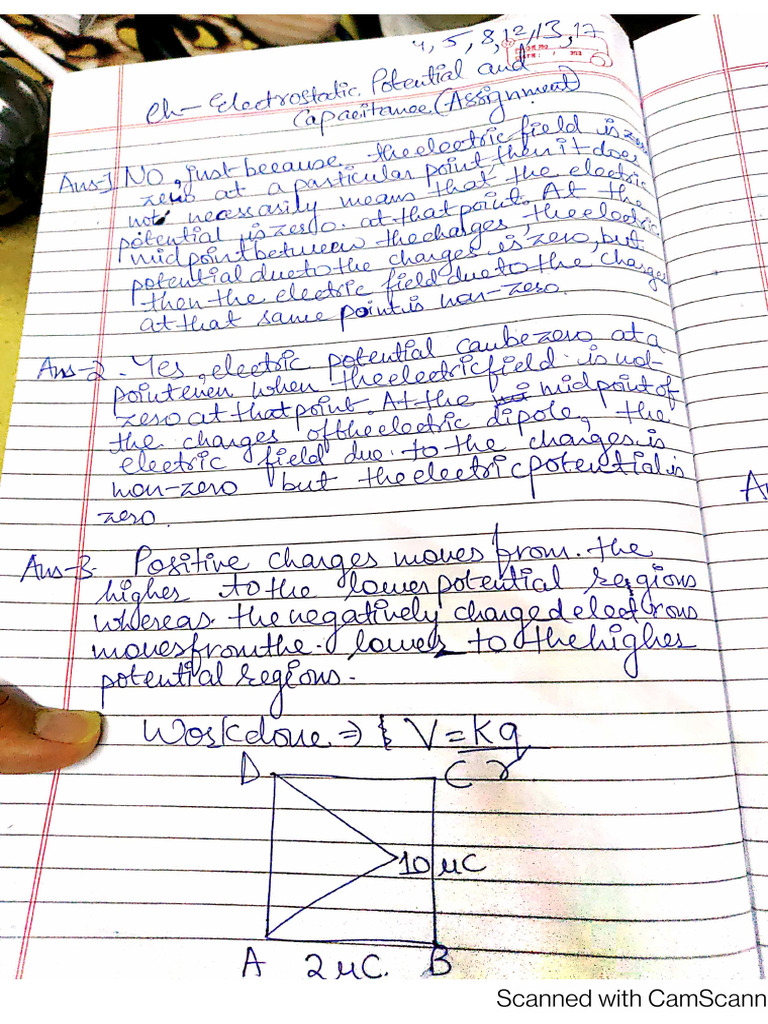 4, 5, 8, 12, 13, 17
Ch- Electrostatic Potential and
Capacitance (Assignment)
Ans-1 NO, just because the electric field is zero
zero at a particular point then it does
not necessasily means that the electric
potential is zero. at that point. At the
midpoint between the charges, the electric
potential due to the charges is zero, but
then the electric field due to the charges
at that same point is non-zero.
Ans-2. Yes, electric potential can be zero at a
point even when the electric field is not
zero at that point. At the midpoint of
the charges of the electric dipole, the
electric field due to the charges is
non-zero but the electric potential is
zero.
Ans-3. Positive charges moves from the
higher to the lower potential regions
whereas the negatively charged electrons
moves from the lower to the higher
potential regions.
Workdone => { V = Kq
r
D C
10 μC
A 2 μC. B
Scanned with CamScann